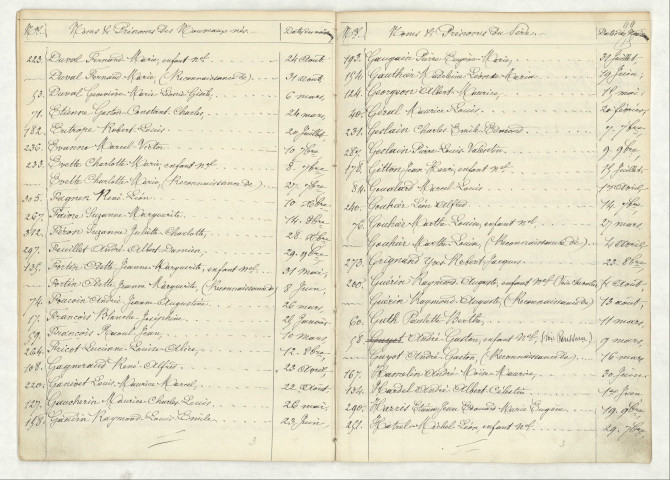 Nos Noms & Prénoms des Nouveaux nés. Dates des
223. Duval Fernand Marie, enfant nel. 24 Août
— Duval Fernand Marie, (Reconnaissance de) 31 Août
53. Duval Geneviève Marie 6 mars
71. Etienne Gaston Constant Charles, 24 mars
182. Eutrope Robert Louis 20 Juillet
236. Evanno Marcel Victor 10 7bre
233. Evette Charlotte Marie, enfant nel 8 7bre
— Evette Charlotte Marie, (Reconnaissance de) 27 7bre
305. Fagnen René Léon 10 Xbre
267. Faivre Suzanne Marguerite 14 8bre
312. Féron Suzanne Juliette Charlotte 28 Xbre
297. Feuillet André Albert Damien, 29 9bre
135. Fortin Odette Jeanne Marguerite, enfant nel 31 Mai
— Fortin Odette Jeanne Marguerite, (Reconnaissance de) 8 Juin
74. André Jean Augustin 26 mars
17. François Blanche Joséphine 25 Janvier
59. François Raoul Jean, 10 Mars
264. Fricot Lucienne Louise Alice, 12 8bre
108. Gagneraud René Alfred 23 Avril
220. Ganivet Louis Maurice Marcel 22 Août
127. Gaucherin Maurice Charles Louis 26 mai
158. Raymond Louis Emile 23 Juin
3
Nos Noms & Prénoms du Père.
193. Gauguin Pierre Eugène Marie, 31 Juillet
154. Gauthier Madeleine Léone Maria 19 Juin
124. Georgeon Albert Maurice, 18 mai
40. Géral Maurice Louis 20 février
231. Geslain Charles Emile Edmond 7 7bre
287. Geslain Pierre Louis Valentin 9 9bre
178. Gitton Jean Henri, enfant nel 15 Juillet
84. Goualard Marcel Louis 17 Avril
240. Gouhier Léon Alfred 14 7bre
76. Gouhier Marthe Louise, enfant nel, 27 mars
— Gouhier Marthe Louise, (Reconnaissance de) 4 Avril
273. Grignard Yves Robert Jacques 22 8bre
200. Guérin Raymond Auguste, enfant nel 4 Août
— Guérin Raymond Auguste, (Reconnaissance de) 13 août
60. Guth Paulette Berthe, 11 mars
58. Guyot André Gaston, enfant nel, 9 mars
— Guyot André Gaston, (Reconnaissance de) 16 mars
167. Hamelin André Marie Maurice, 30 Juin
134. Hardel André Albert Célestin 1er Juin
290. Harris Etienne Jean Edouard Marie Eugène 19 9bre
251. Hatrel Michel Léon, enfant nel 29 7bre
3